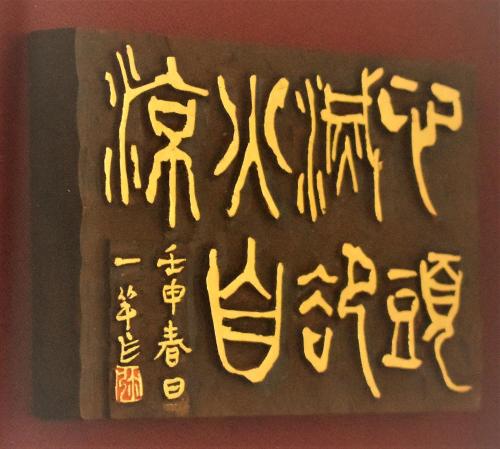 心頭
滅卻
火自
涼
壬申春日
一